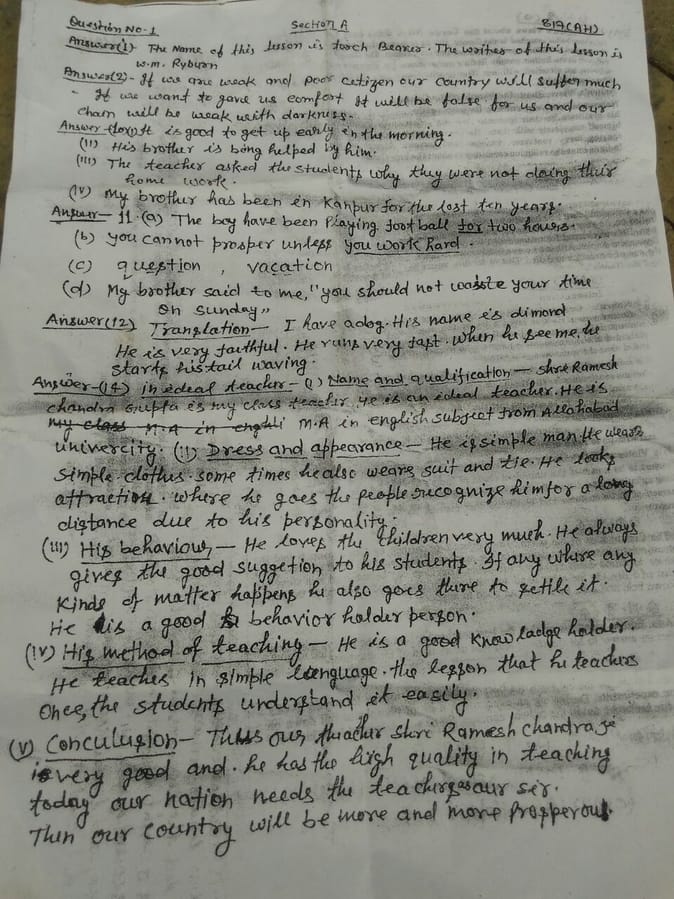 Question No-1 Section A 819(AH)
Answer(1) The Name of this lesson is torch Bearer. The writer of this lesson is
W.M. Ryburn
Answer(2)- If we are weak and poor citizen our country will suffer much
- If we want to gave us comfort It will be false for us and our
chain will be weak with darkness.
Answer It is good to get up early in the morning.
(II) His brother is being helped by him.
(III) The teacher asked the students why they were not doing their
home work.
(IV) My brother has been in Kanpur for the lost ten years.
Answer- 11. (a) The boy have been Playing foot ball for two hours.
(b) you cannot prosper unless you work hard.
(c) question, vacation
(d) My brother said to me, "you should not waste your time
on sunday"
Answer(12) Translation- I have a dog. His name is dimond
He is very faithful. He runs very fast. when he see me, he
starts his tail waving.
Answer-(14) in edeal teacher- (1) Name and qualification- Shri Ramesh
chandra Gupta is my class teacher. He is an ideal teacher. He is
my class M.A in M.A in english subject from Allahabad
univercity. (II) Dress and appearance- He is simple man He wears
simple clothes. some times he also wears suit and tie. He looks
attraction. where he goes the people recognize him for a long
distance due to his personality.
(III) His behaviour- He loves the children very much. He always
gives the good suggetion to his students. If any where any
kinds of matter happens he also goes there to settle it.
He is a good behavior holder person.
(IV) His method of teaching- He is a good know ladge holder.
He teaches in simple lenguage. the lesson that he teachers
Once, the students understand it easily.
(V) Conculusion- Thus our theacher Shri Ramesh chandra
is very good and. he has the high quality in teaching
today our nation needs the teachers as our sir.
Then our country will be more and more prosperous.